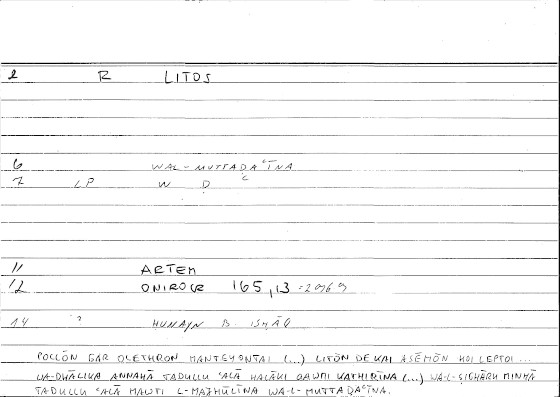 2 R LITOS
6 WAL-MUTTAḌAʿĪNA
7 LP W Ḍ ʿ
11 ARTEM
12 ONIROCR 165,13 = 2969
14 ? ḤUNAYN B. ISḤĀQ
POLLŌN GAR OLETHRON MANTEYONTAI (...) LITŌN DE KAI ASĒMŌN HOI LEPTOI ...
WA-DHĀLIKA ANNAHĀ TADULLU ʿALĀ HALĀKI QAWMI KATHĪRĪNA (...) WA-L-ṢIGHĀRU MINHĀ
TADULLU ʿALĀ MAWTI L-MAJHŪLĪNA WA-L-MUTTAḌAʿĪNA.